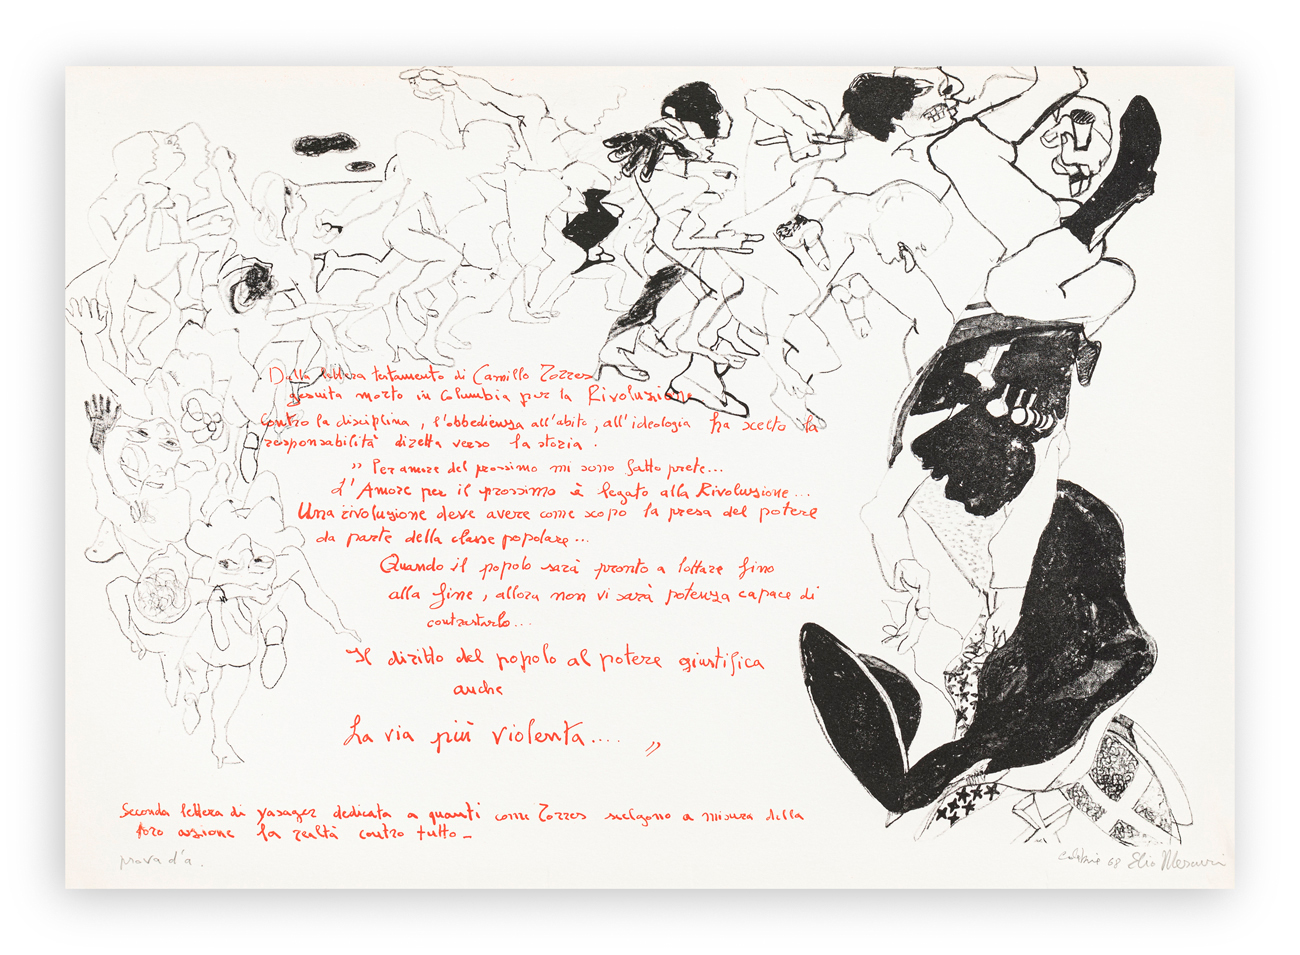 Dalla lettera testamento di Camillo Torres
gesuita morto in Columbia per la Rivoluzione
contro la disciplina, l'obbedienza all'abito, all'ideologia ha scelto la
responsabilità diretta verso la storia.
" Per amore del prossimo mi sono fatto prete...
L'Amore per il prossimo è legato alla Rivoluzione...
Una rivoluzione deve avere come scopo la presa del potere
da parte della classe popolare...
Quando il popolo sarà pronto a lottare fino
alla fine, allora non vi sarà potenza capace di
contrastarlo...
Il diritto del popolo al potere giustifica
anche
La via più violenta.... "
Seconda lettera di yasager dedicata a quanti come Torres scelgono a misura della
loro azione la realtà contro tutto_
prova d'a.
68 Elio